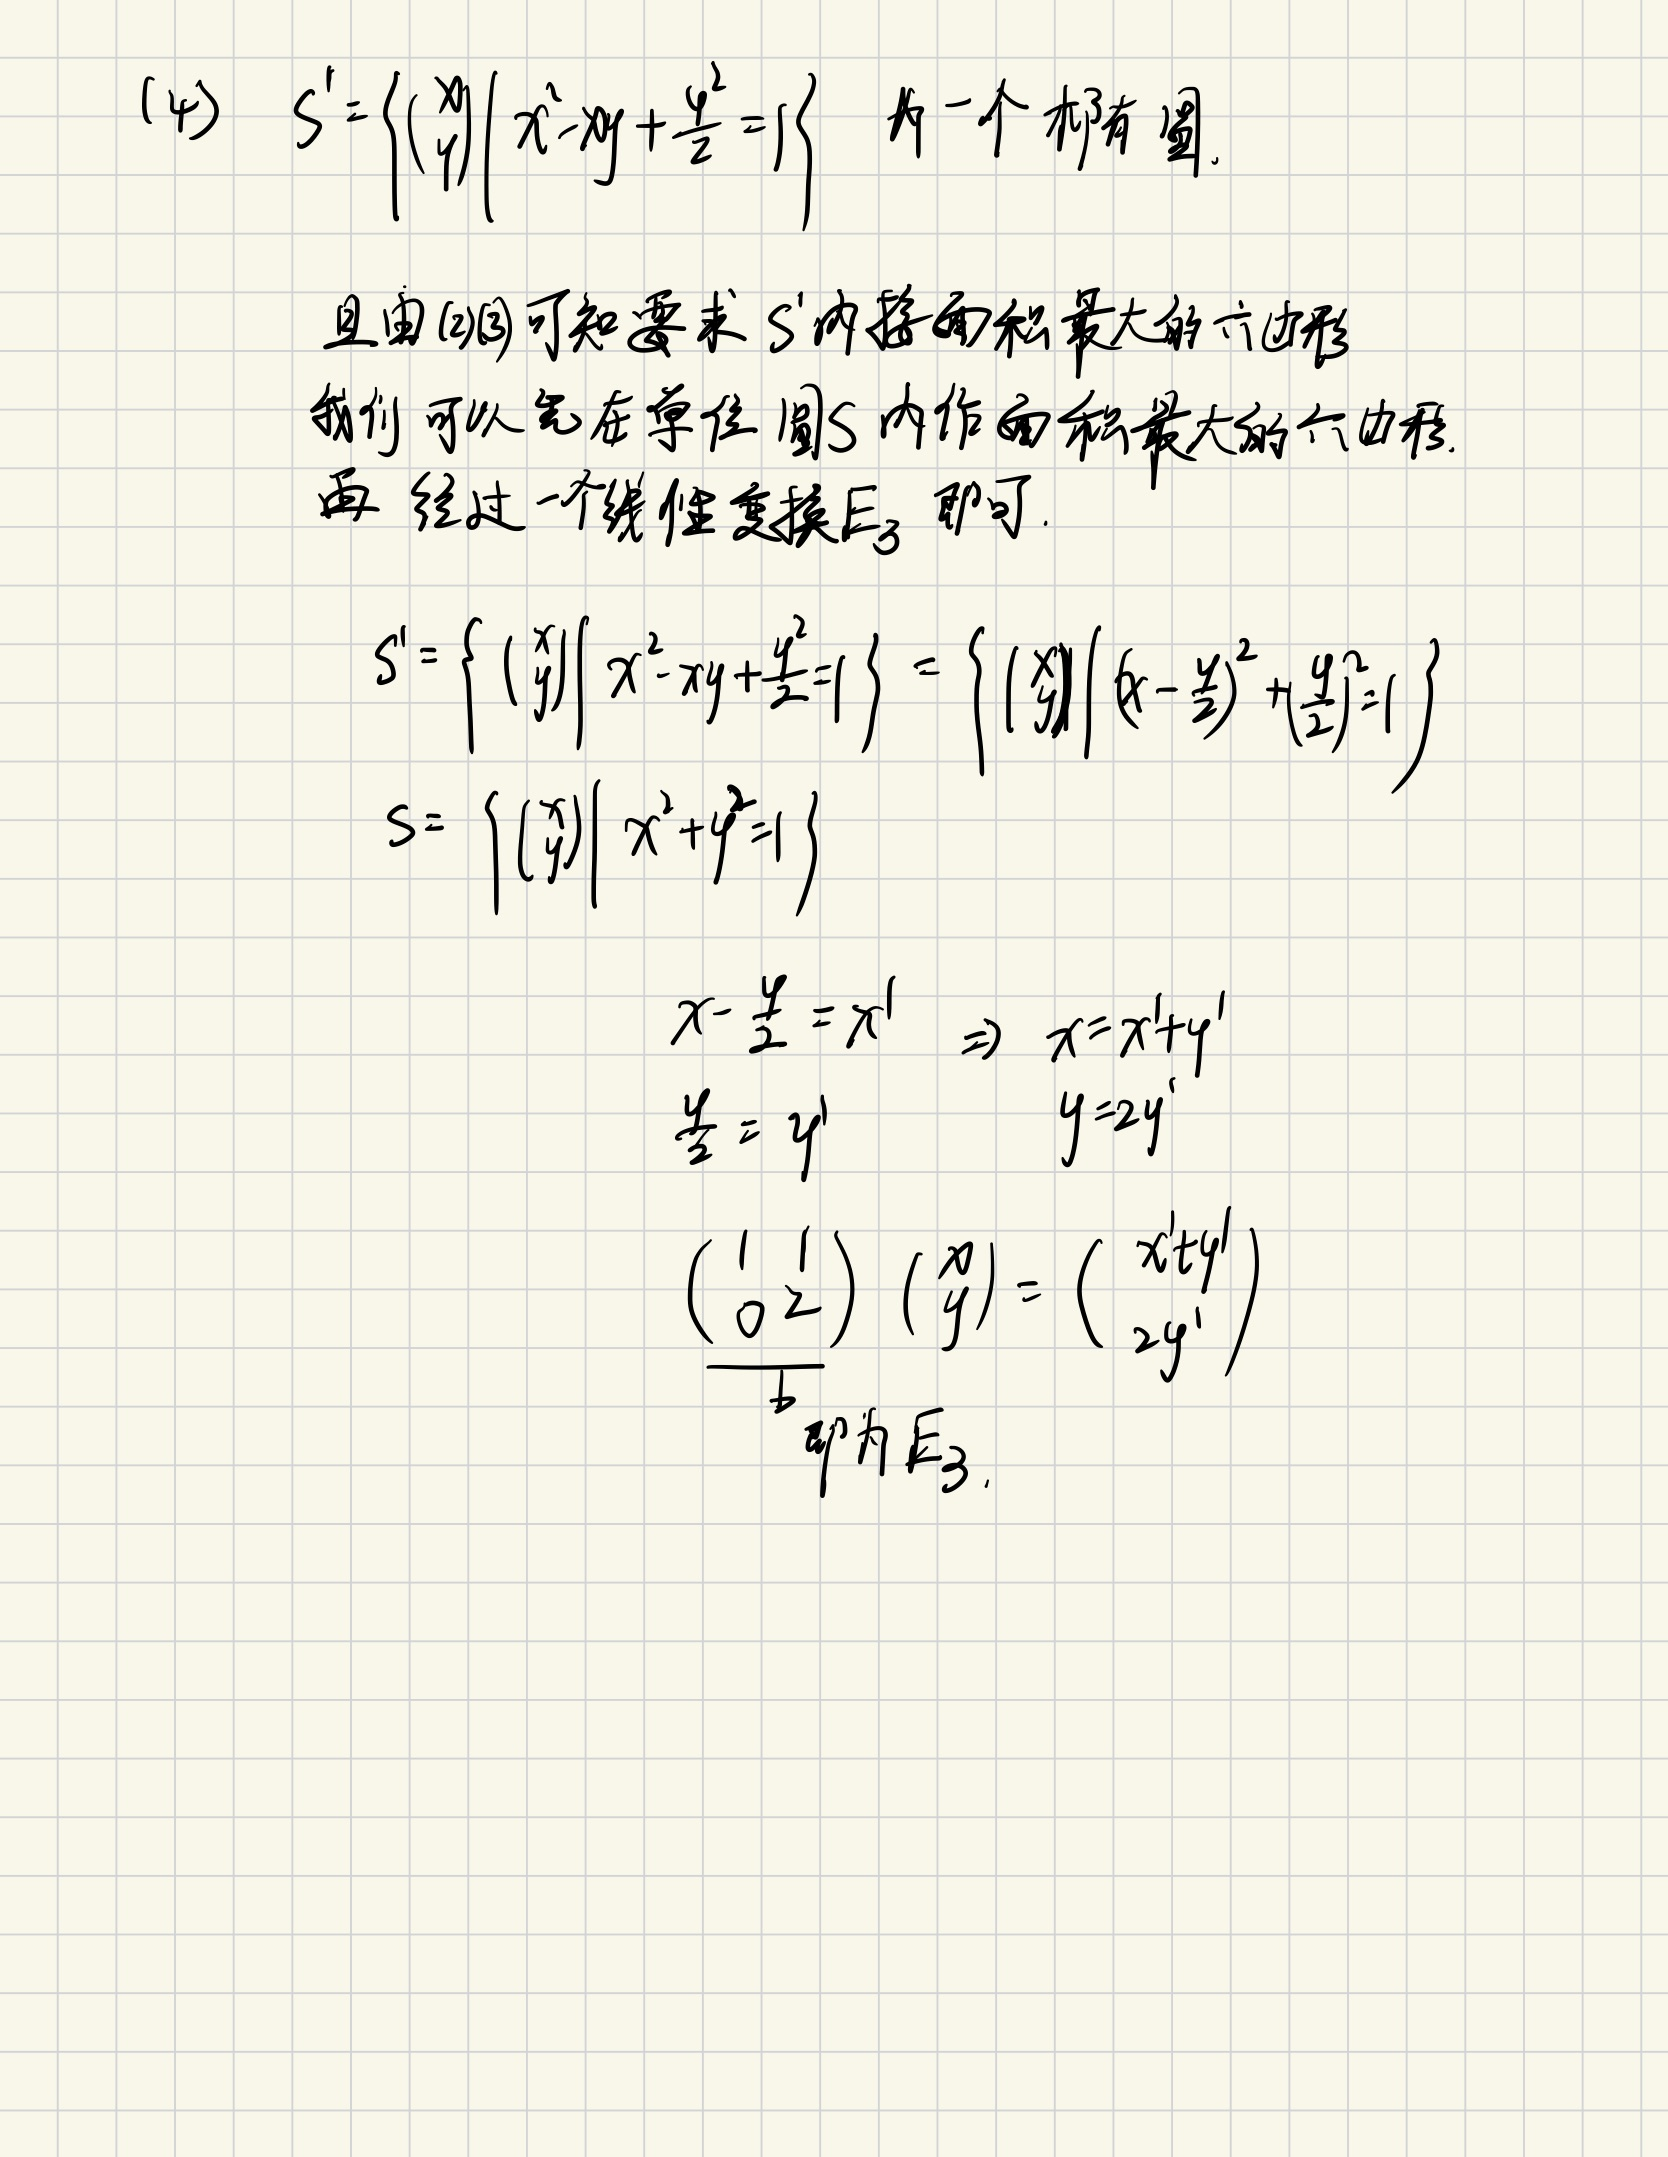 (4) S' = { (x y) | x² - xy + y²/2 = 1 } 为一个椭圆.
且由(2)(3)可知要求 S' 内接面积最大的六边形
我们可以先在单位圆S内作面积最大的六边形.
再经过一个线性变换E₃ 即可.
S' = { (x y) | x² - xy + y²/2 = 1 } = { (x y) | (x - y/2)² + (y/2)² = 1 }
S = { (x y) | x² + y² = 1 }
x - y/2 = x' ⇒ x = x' + y'
y/2 = y' y = 2y'
(1 1 0 2) (x y) = (x' + y' 2y')
即为E₃.